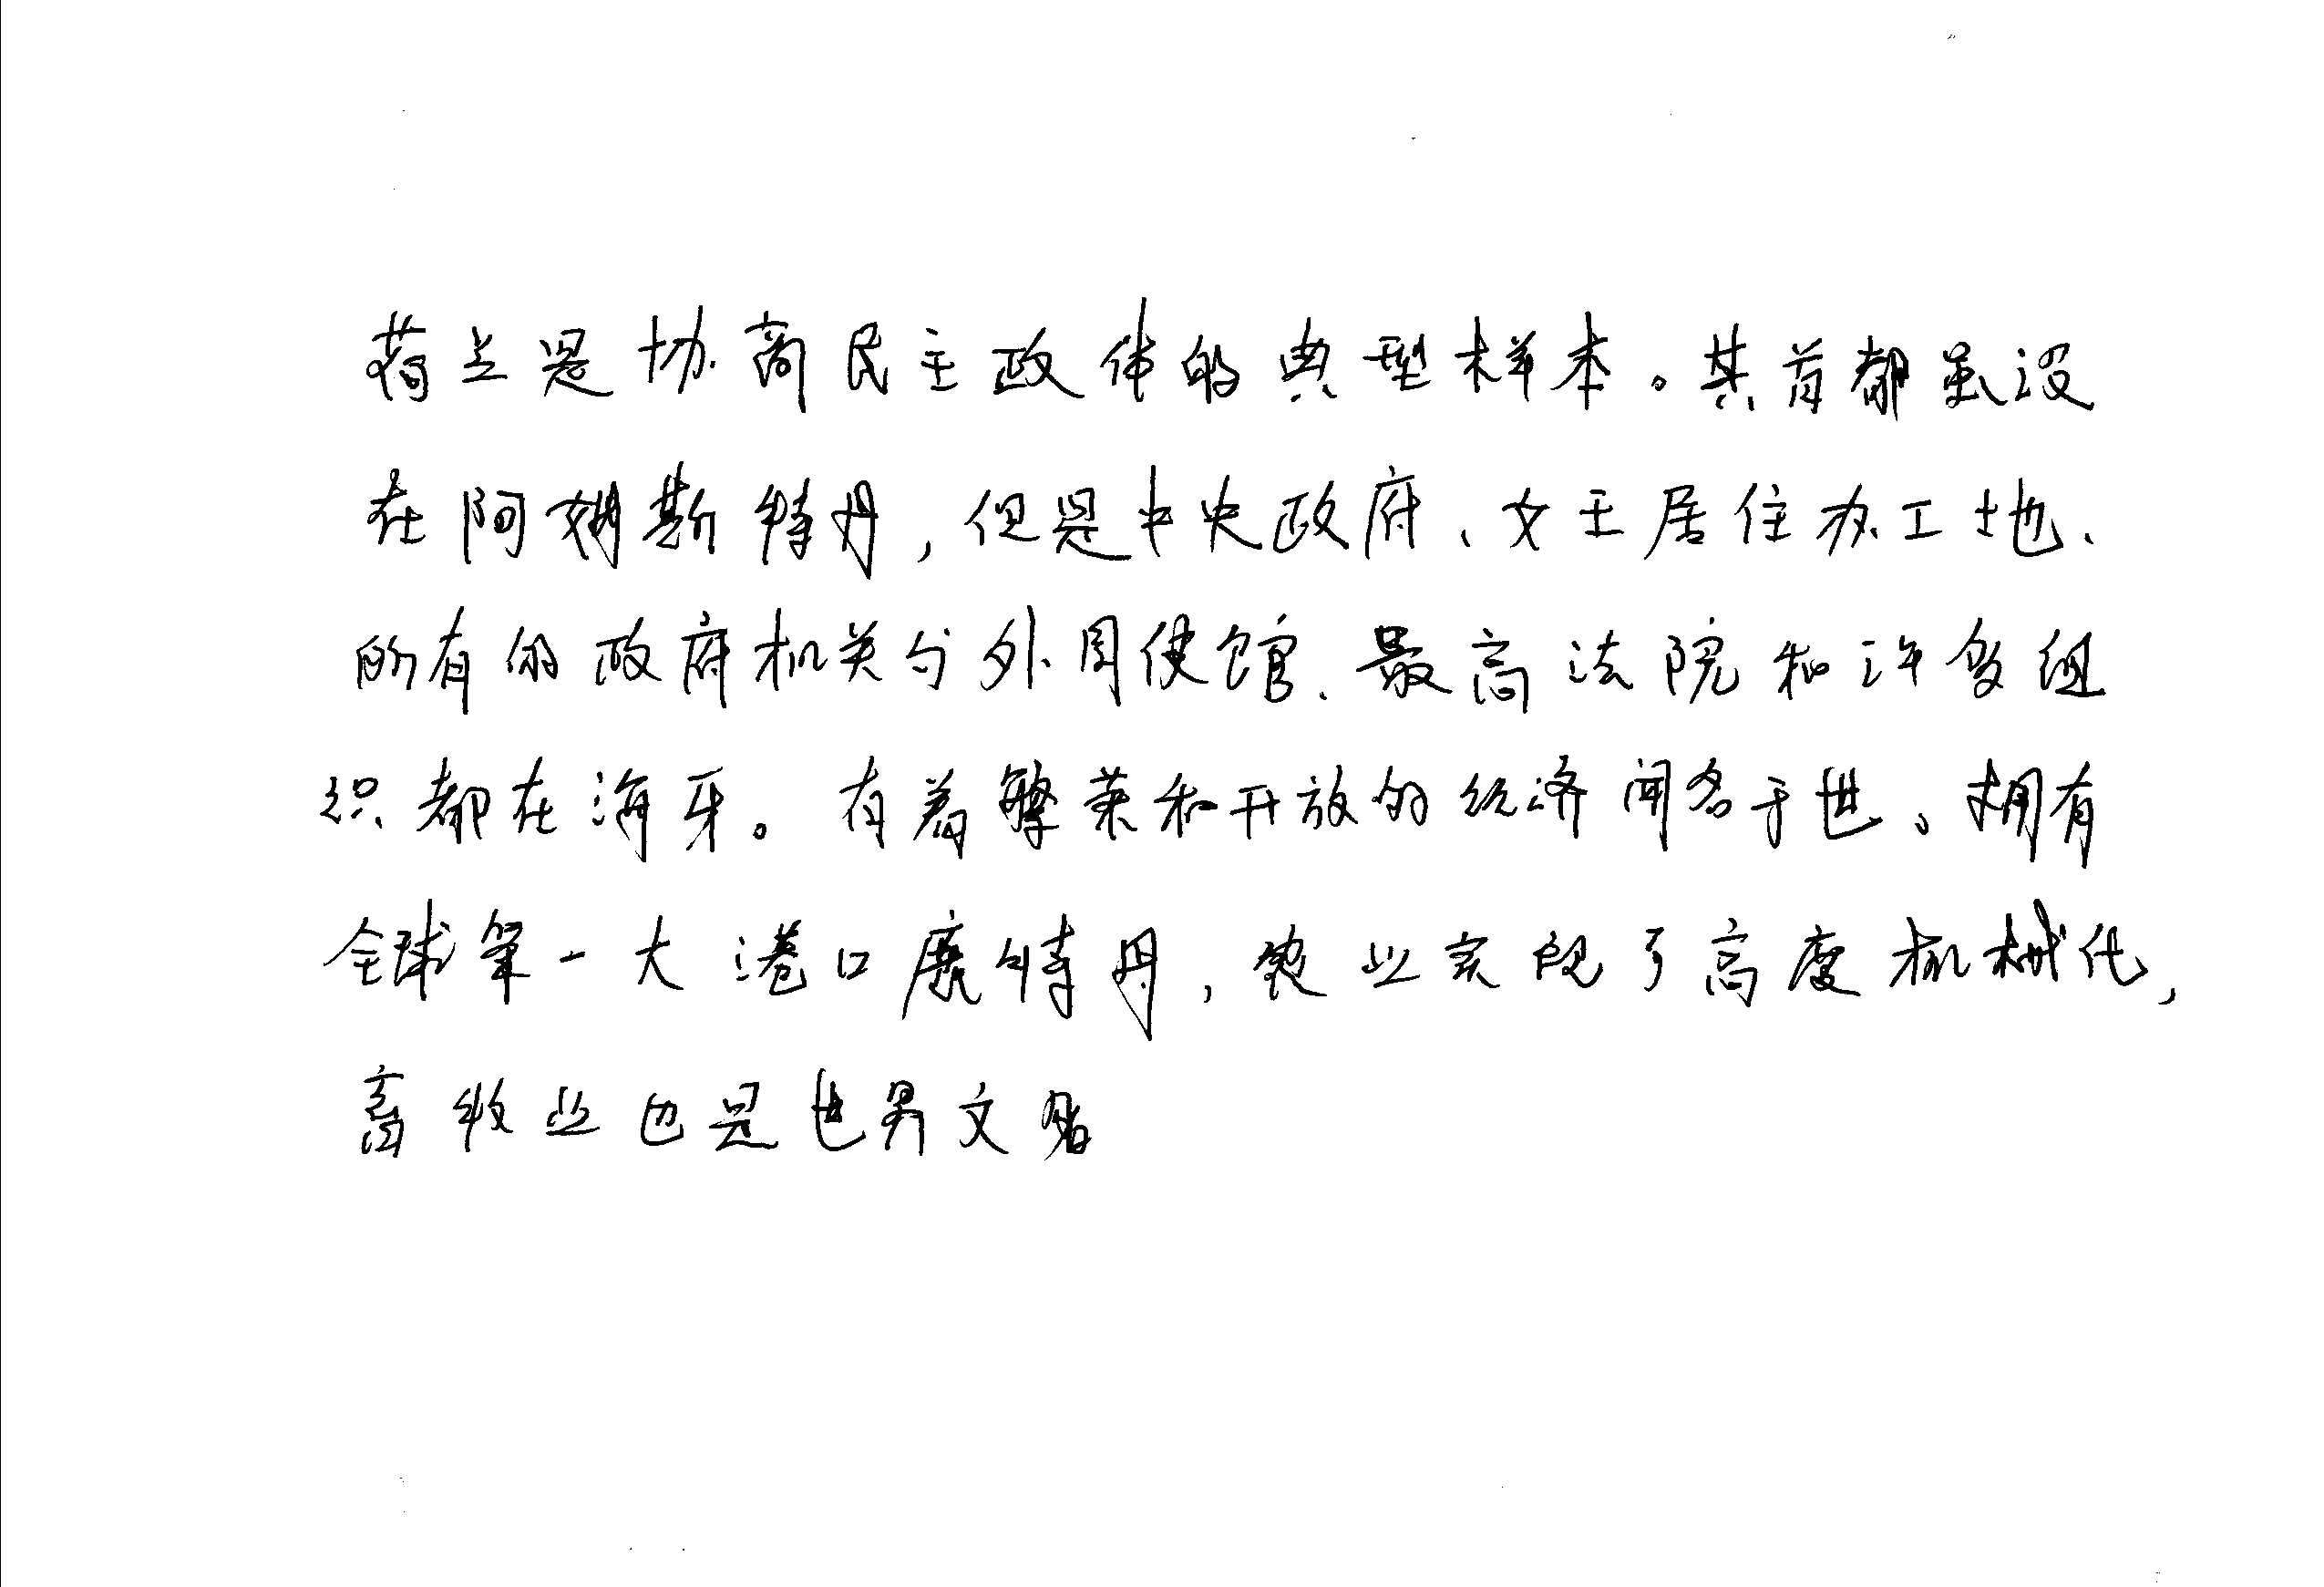 荷兰是协商民主政体的典型样本。其首都虽设
在阿姆斯特丹,但是中央政府、女王居住办工地、
所有的政府机关与外国使馆、最高法院和许多组
织都在海牙。有着繁荣和开放的经济闻名于世。拥有
全球第一大港口鹿特丹,农业实现了高度机械化,
畜牧业也是世界文明